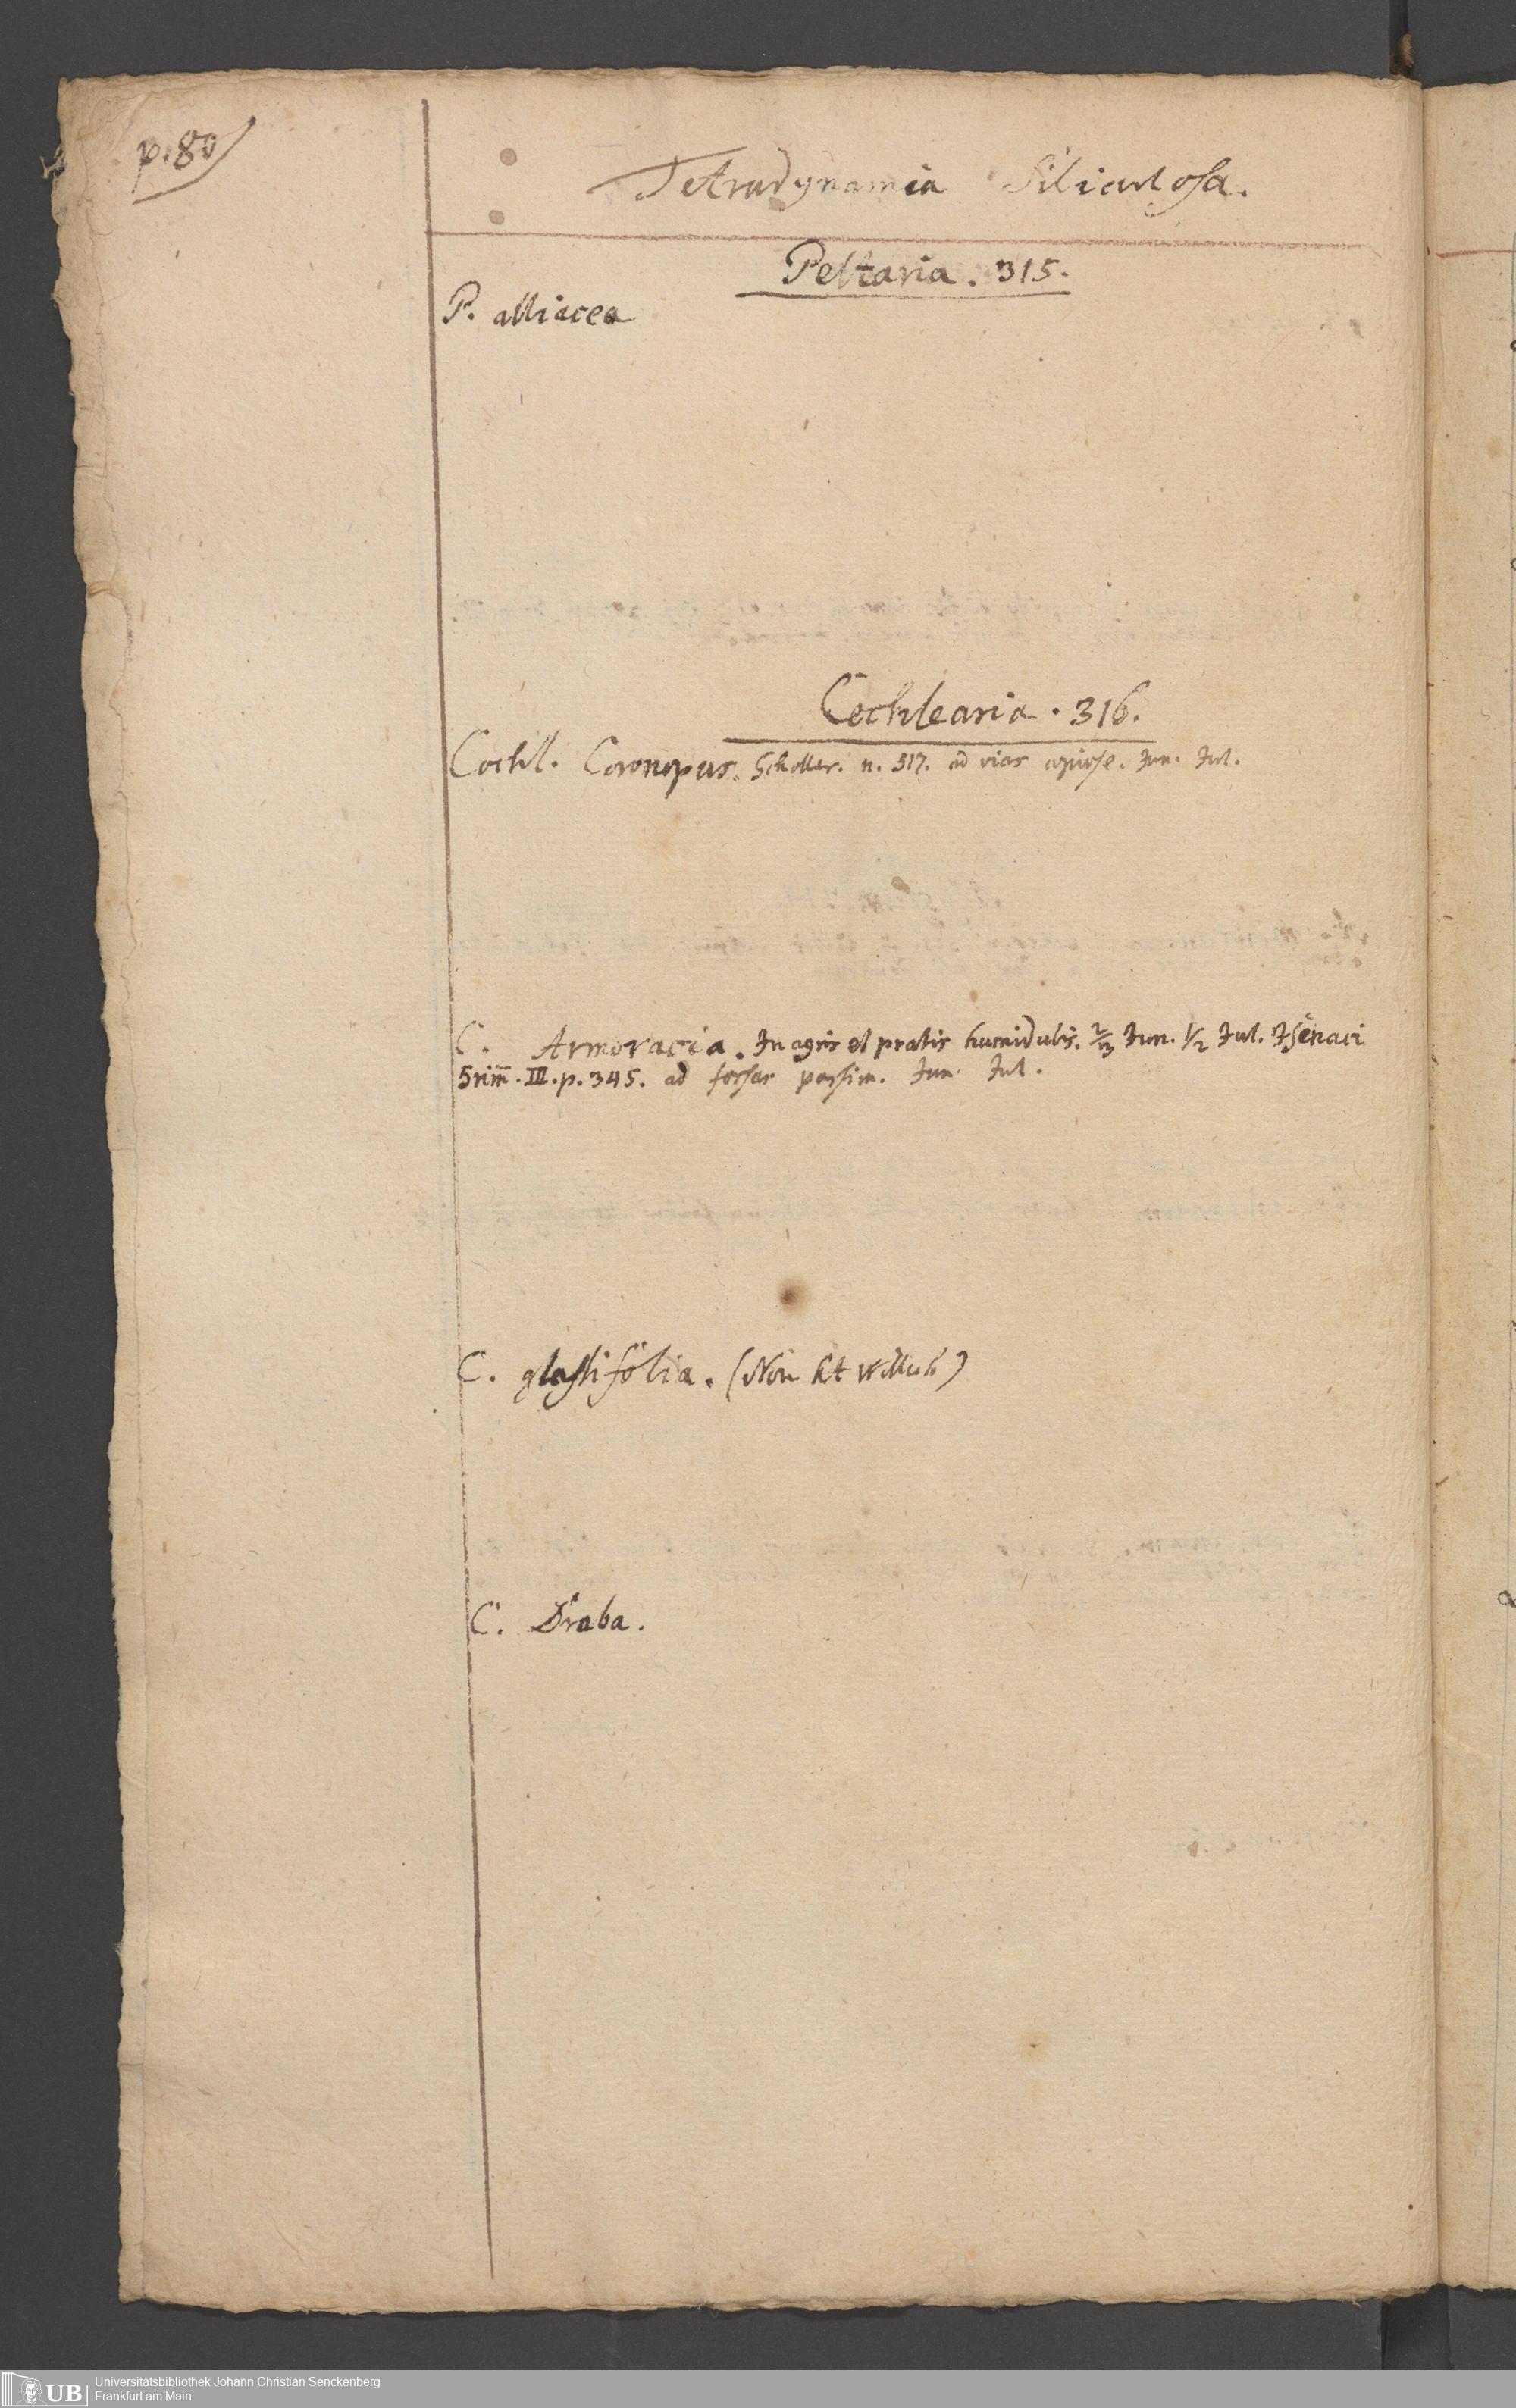 p. 80
Tetradynamia Siliculosa.
Peltaria. 315.
P. alliacea
Cochlearia. 316.
Cochl. Coronopus. Scholler. n. 317. ad vias copiose. Jun. Jul.
C. Armoracia. In agris et pratis humidulis. 2/3 Jun. 1/2 Jul. Isenaci
Grim̄. III. p. 345. ad fossas passim. Jun. Jul.
C. glastifolia. (Non
C. Draba.
UB Universitätsbibliothek Johann Christian Senckenberg
Frankfurt am Main